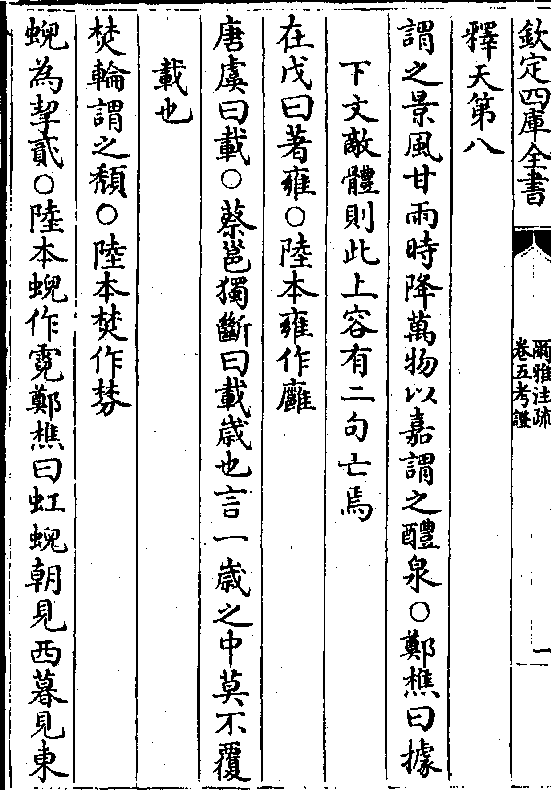 欽定四庫全書
爾雅注疏
卷五考證
一
釋天第八
謂之景風甘雨時降萬物以嘉謂之醴泉○鄭樵曰據
下文敵體則此上容有二句亡焉
在戊曰著雍○陸本雍作廱
唐虞曰載○蔡邕獨斷曰載歳也言一歳之中莫不覆
載也
焚輪謂之頽○陸本焚作棼
蜺為挈貳○陸本蜺作霓鄭樵曰虹蜺朝見西暮見東